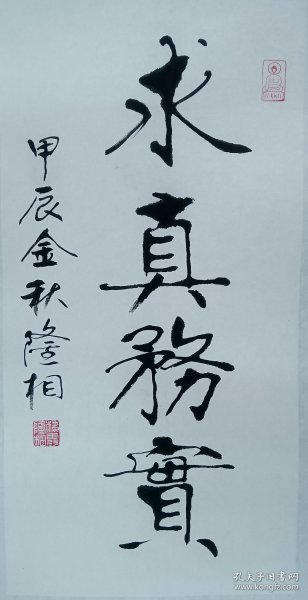 求真務實
甲辰金秋隆相
孔夫子旧书网
www.kongfz.com